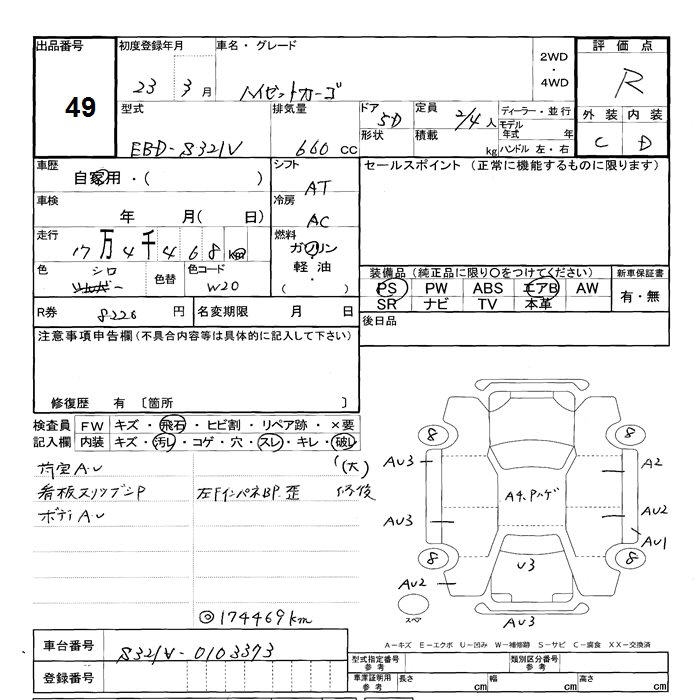 出品番号
49
初度登録年月
23 3月
車名・グレード
ハイゼットカーゴ
2WD
・
4WD
評価点
R
外装 内装
C D
型式
EBD-S321V
排気量
660 cc
ドア
5D
形状
定員
2/4人
積載
kg
ディーラー・並行
モデル年式 年
ハンドル 左・右
車歴
自家用・( )
車検
年 月( 日)
走行
17万4千468km
色
シロ
色替
色コード
W20
シフト
AT
冷房
AC
燃料
ガソリン
軽油
( ・ )
セールスポイント (正常に機能するものに限ります)
装備品(純正品に限り○をつけてください)
PS PW ABS エアB AW
SR ナビ TV 本革
新車保証書
有・無
後日品
R券
8220 円
名変期限
月 日
注意事項申告欄(不具合内容等は具体的に記入して下さい)
修復歴 有 〔箇所 〕
検査員記入欄
FW キズ・飛石・ヒビ割・リペア跡・×要
内装 キズ・汚レ・コゲ・穴・スレ・キレ・破レ
(大)
荷室A.U
看板スリップシP 左FインパネBP.歪 修復
ボディA.U
◎174469km
8 8
AU3 A2
A4.Pハゲ
AU3 AU2
AU1
8 8
U3
AU2
スペア
AU3
A-キズ E-エクボ U-凹み W-補修跡 S-サビ C-腐食 XX-交換済
車台番号
S321V-0103373
登録番号
型式指定番号 参考
類別区分番号 参考
車庫証明用 参考
長さ cm
幅 cm
高さ cm